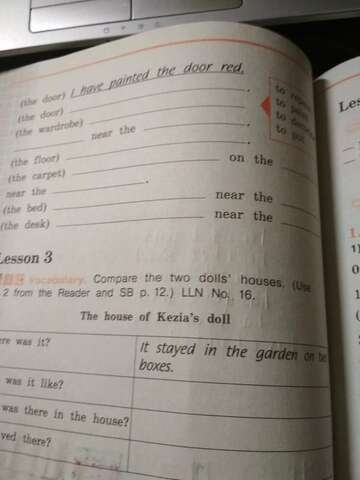 (the door) I have painted the door red.
(the door)
(the wardrobe)
near the
(the floor) on the
(the carpet)
near the
(the bed) near the
(the desk) near the
to
to paint
to
to put
Lesson 3
Vocabulary. Compare the two dolls' houses. (Use
2 from the Reader and SB p. 12.) LLN No. 16.
The house of Kezia's doll
ere was it? It stayed in the garden on
boxes.
was it like?
was there in the house?
ved there?
Les